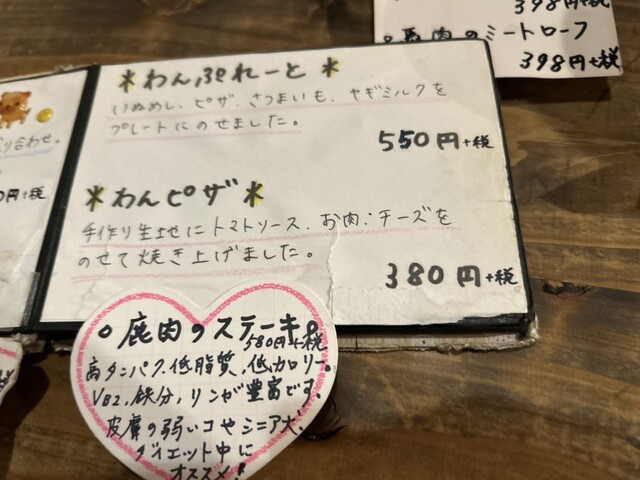 398円+税
。馬肉のミートローフ
398円+税
り合わせ。
0円+税
*わんぷれーと*
いぬめし、ピザ、さつまいも、ヤギミルクを
プレートにのせました。
550円+税
*わんピザ*
手作り生地にトマトソース、お肉、チーズを
のせて焼き上げました。
380円+税
。鹿肉のステーキ。
580円+税
高タンパク、低脂質、低カロリー。
VB2、鉄分、リンが豊富です。
皮膚の弱いコやシニア犬、
ダイエット中に
オススメ!